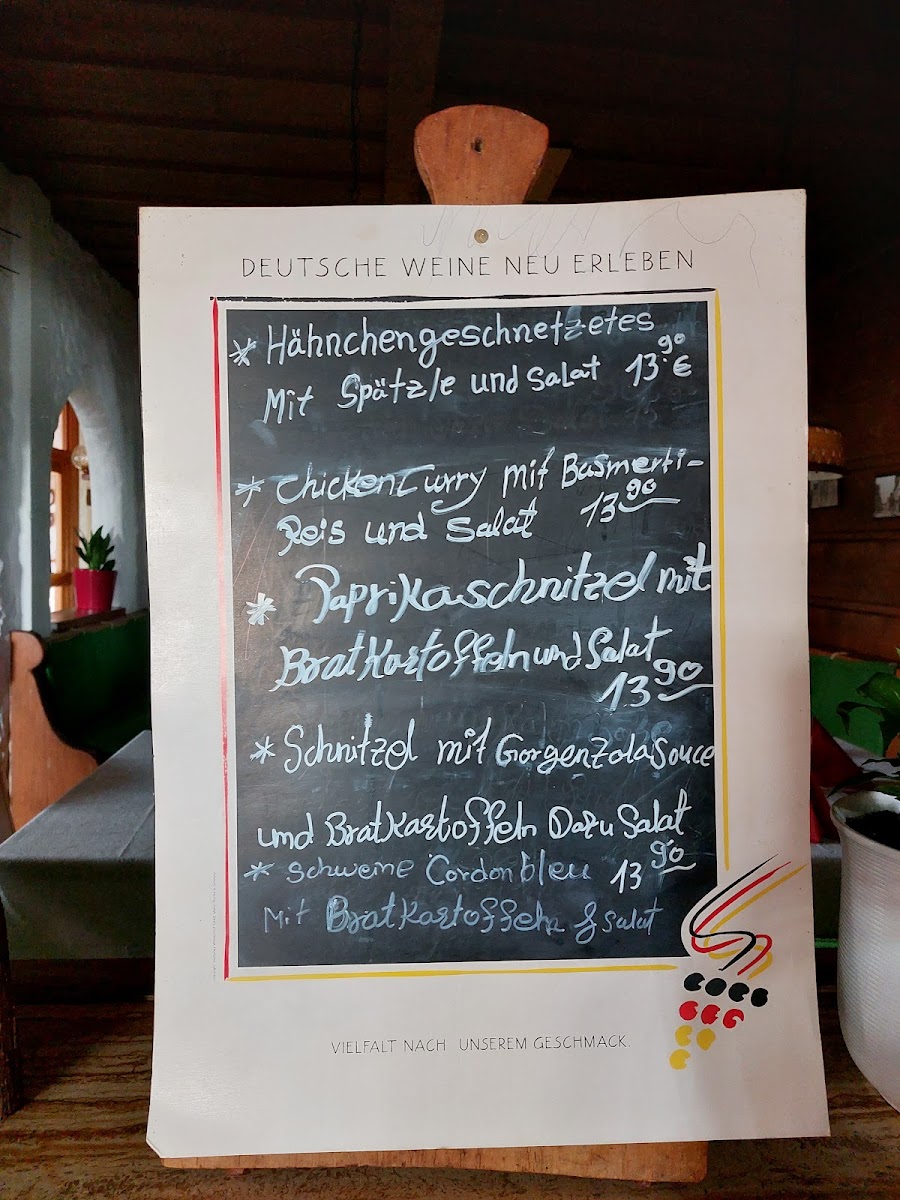 DEUTSCHE WEINE NEU ERLEBEN
* Hähnchengeschnetzetes
Mit Spätzle und Salat 13.90 €
* ChickenCurry mit Basmerti-
Reis und Salat 13 90
* Paprikaschnitzel mit
BratKartoffeln und Salat
13 90
* Schnitzel mit GorgenzolaSouce
und BratKartoffeln Dazu Salat
* Schweine Cordonbleu 13 90
Mit BratKartoffeln & Salat
VIELFALT NACH UNSEREM GESCHMACK.